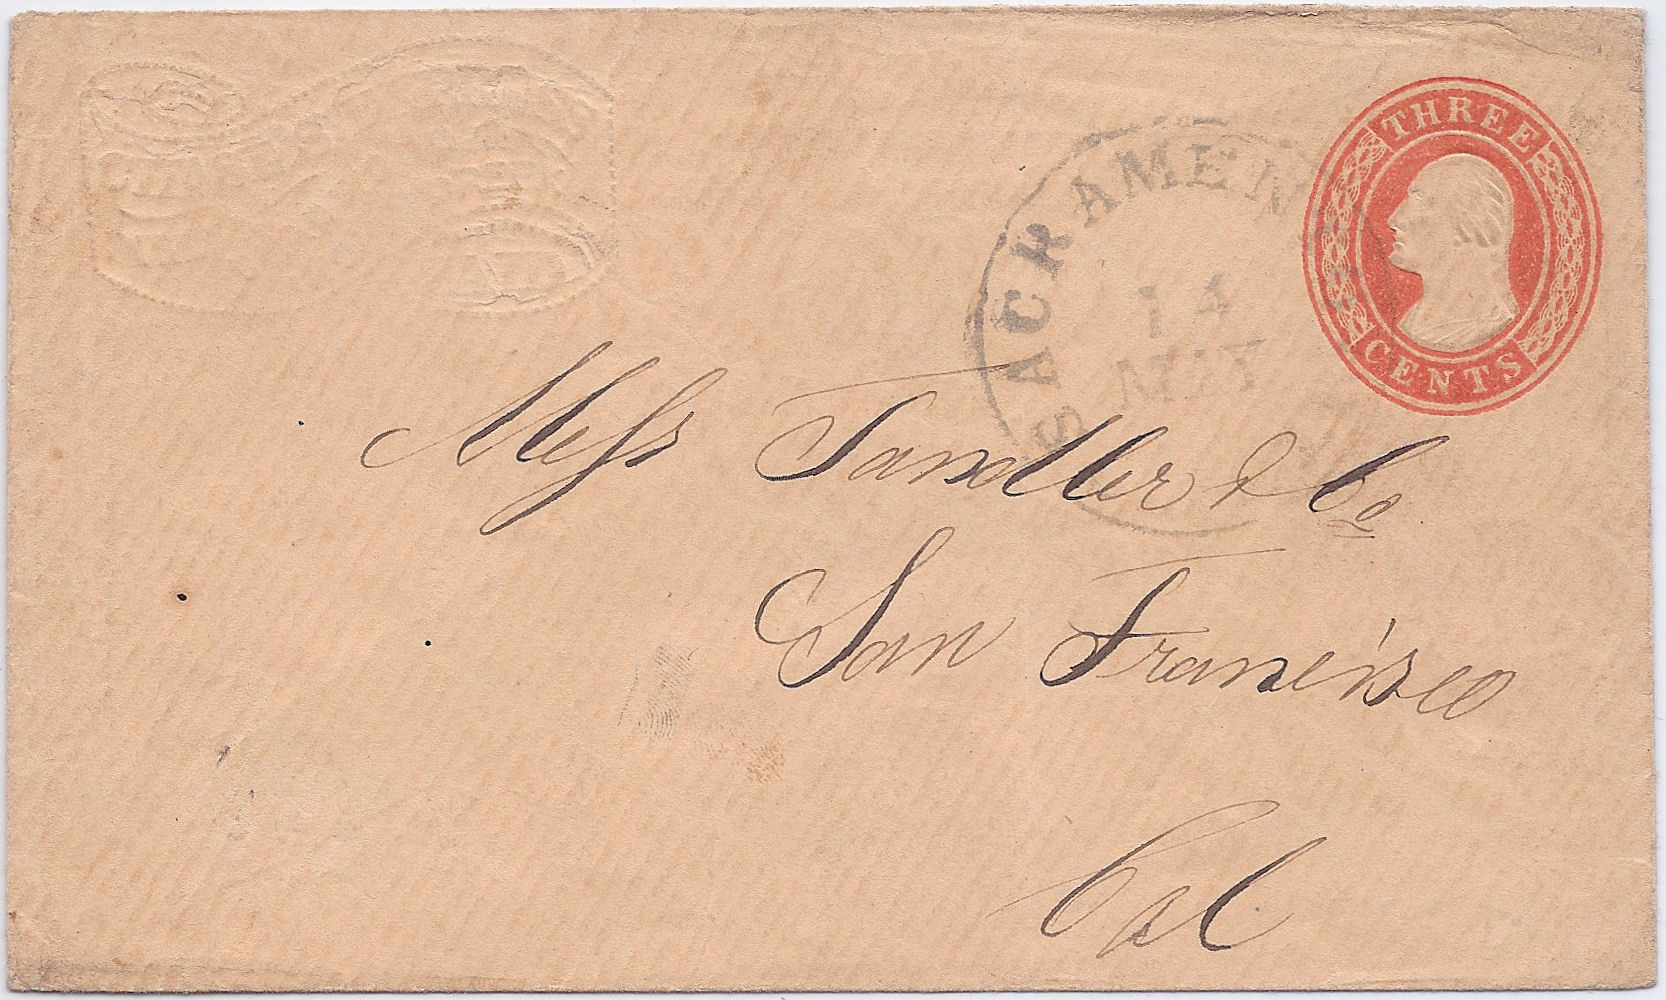 THREE
CENTS
SACRAMEN
14
MAY
Mess Sandler & Co
San Francisco
Cal